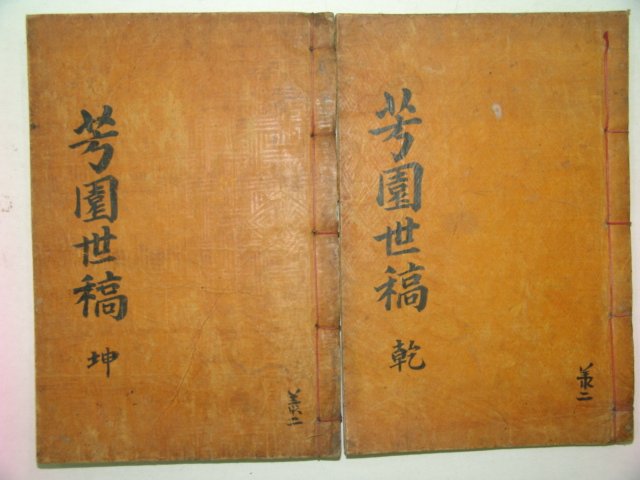 芳園世稿
乾
二
芳園世稿
坤
二